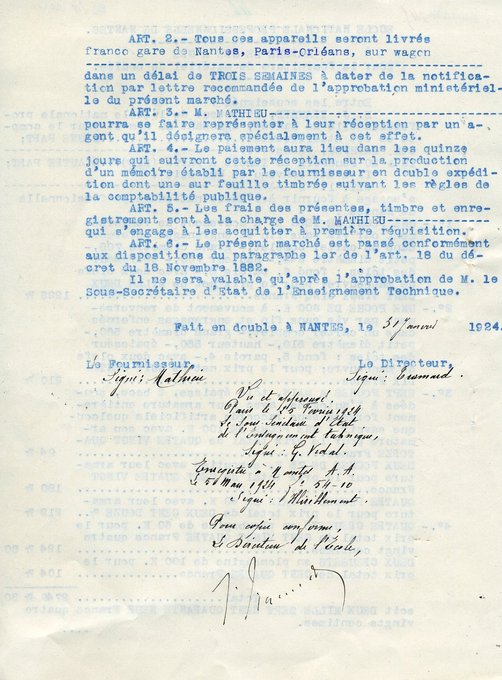 ART. 2.- Tous ces appareils seront livrés
franco gare de Nantes, Paris-Orléans, sur wagon
dans un délai de TROIS SEMAINES à dater de la notifica-
tion par lettre recommandée de l'approbation ministériel-
le du présent marché.
ART. 3.- M. MATHIEU
pourra se faire représenter à leur réception par un a-
gent qu'il désignera spécialement à cet effet.
ART. 4.- Le paiement aura lieu dans les quinze
jours qui suivront cette réception sur la production
d'un mémoire établi par le fournisseur en double expédi-
tion dont une sur feuille timbrée suivant les règles de
la comptabilité publique.
ART. 5.- Les frais des présentes, timbre et enre-
gistrement sont à la charge de M. MATHIEU
qui s'engage à les acquitter à première réquisition.
ART. 6.- Le présent marché est passé conformément
aux dispositions du paragraphe 1er de l'art. 18 du dé-
cret du 18 Novembre 1882.
Il ne sera valable qu'après l'approbation de M. le
Sous-Secrétaire d'Etat de l'Enseignement Technique.
Fait en double à NANTES, le 31 Janvier 1924.
Le Fournisseur, Le Directeur,
Signé: Mathieu Signé:
Vu et approuvé
Paris le 25 Février 1924
Le Sous Secrétaire d'Etat
de l'Enseignement technique,
Signé: G. Vidal.
Enregistré à Nantes A.A.
Le 5 Mars 1924 54-10
Signé:
Pour copie conforme,
Le Directeur de l'Ecole,